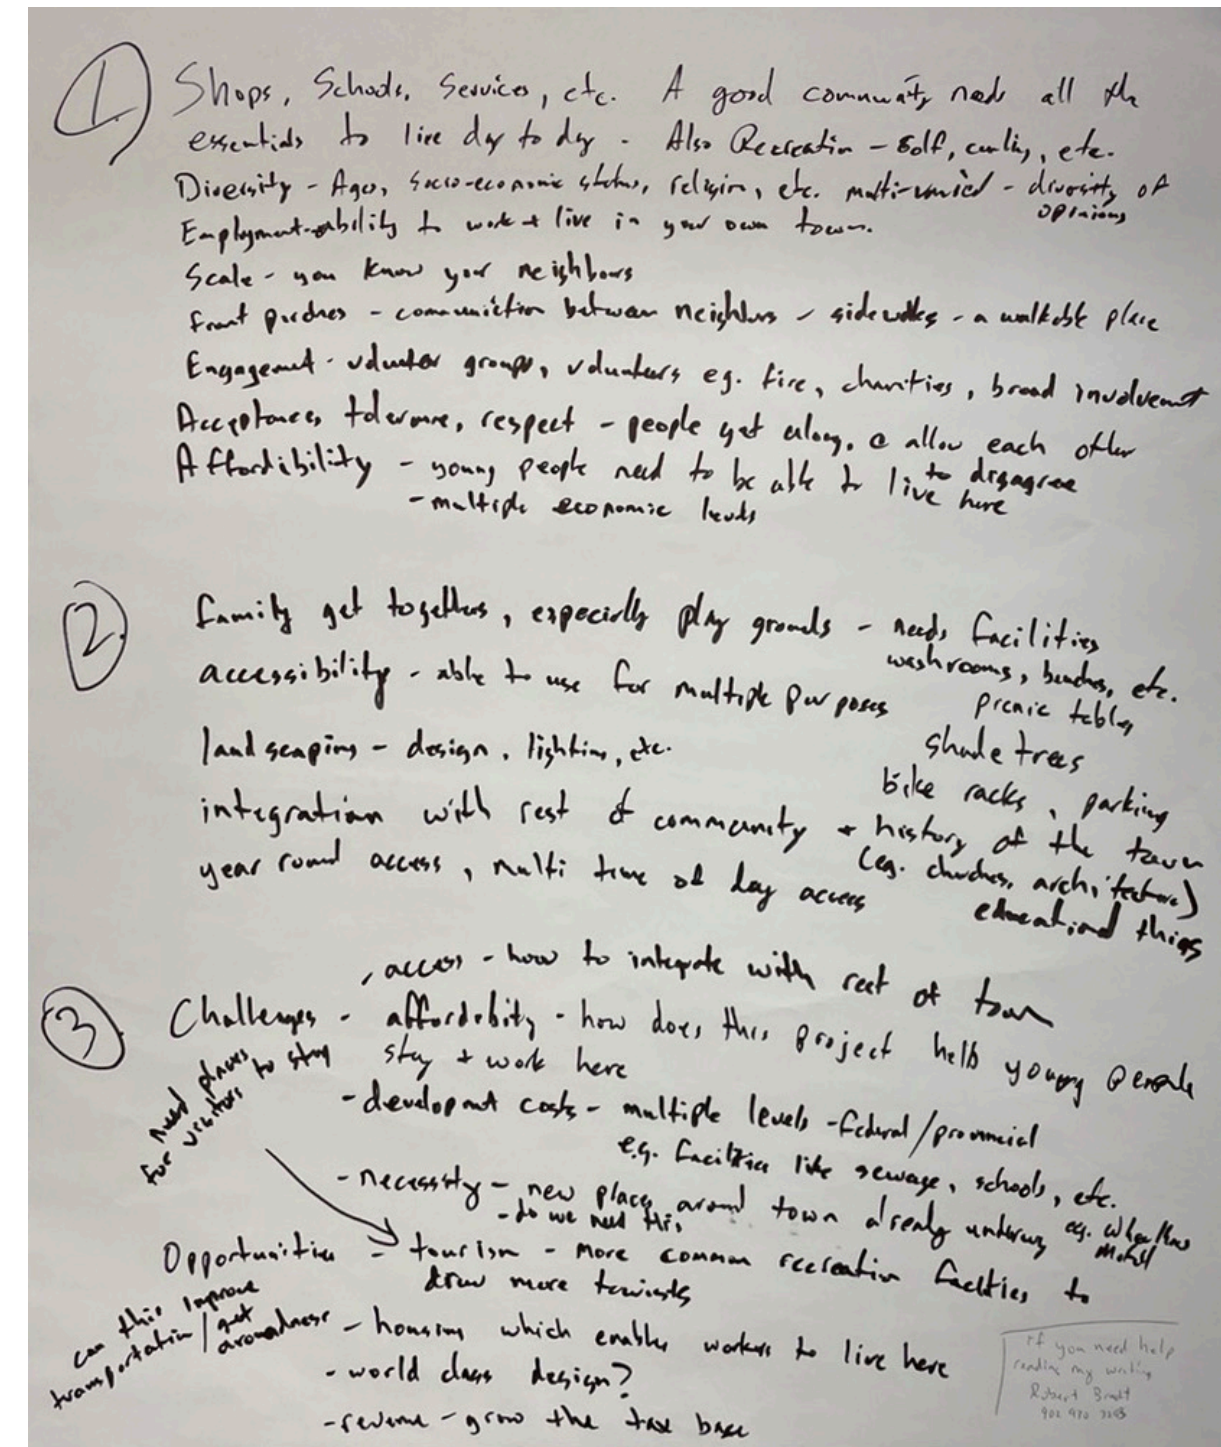 1.
Shops, Schools, Services, etc. A good community needs all the
essentials to live day to day - Also Recreation - Golf, curling, etc.
Diversity - Ages, Socio-economic status, religion, etc. multi- - diversity of
opinions
Employment - ability to work + live in your own town.
Scale - you know your neighbours
front porches - communiction between neighbors - sidewalks - a walkable place
Engagement - volunteer groups, volunteers eg. fire, charities, broad involvement
Acceptance, tolerance, respect - people get along, allow each other
to disagree
Affordibility - young people need to be able to live here
- multiple economic levels
2.
family get togethers, especially play grounds - needs facilities
washrooms, benches, etc.
picnic tables
accessibility - able to use for multiple purposes
shade trees
landscaping - design, lighting, etc.
bike racks, parking
integration with rest of community + history of the town
(eg. churches, architecture)
year round access, multi time of day access
educational things
3.
, access - how to integrate with rest of town
Challenges - affordibity - how does this project help young people
stay + work here
- development costs - multiple levels - federal/provincial
e.g. facilities like sewage, schools, etc.
- necessity - new places around town already underway eg.
Motel
- do we need this
need places
for visitors to stay
Opportunities - tourism - more common recreation facilties to
draw more tourists
can this improve
transportation/get
aroundness
- housing which enables workers to live here
- world class design?
- revenue - grow the tax base
if you need help
reading my writing
Robert
902